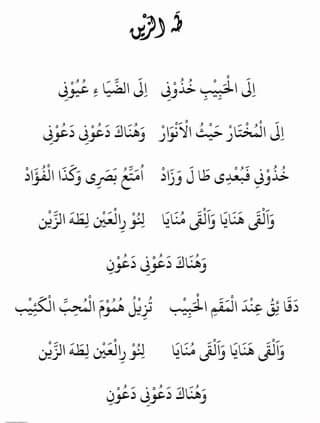 طٰهَ الزَّيْن
اِلَى الْحَبِيْبِ خُذُوْنِى اِلَى الضِّيَا ءِ عُيُوْنِى
اِلَى الْمُخْتَارْ حَيْثُ الْاَنْوَارْ وَهُنَاكَ دَعُوْنِى دَعُوْنِى
خُذُوْنِى فَبُعْدِى طَا لَ وَزَادْ اُمَتِّعُ بَصَرِى وَكَذَا الْفُؤَادْ
وَاَلْقَى هَنَايَا وَاَلْقَى مُنَايَا لِنُوْ رِالْعَيْن لِطٰهَ الزَّيْن
وَهُنَاكَ دَعُوْنِى دَعُوْنِ
دَقَا ئِقْ عِنْدَ الْمَقَمِ الْحَبِيْب تُزِيْلُ هُمُوْمَ الْمُحِبِّ الْكَئِيْب
وَاَلْقَى هَنَايَا وَاَلْقَى مُنَايَا لِنُوْ رِالْعَيْن لِطٰهَ الزَّيْن
وَهُنَاكَ دَعُوْنِى دَعُوْنِ